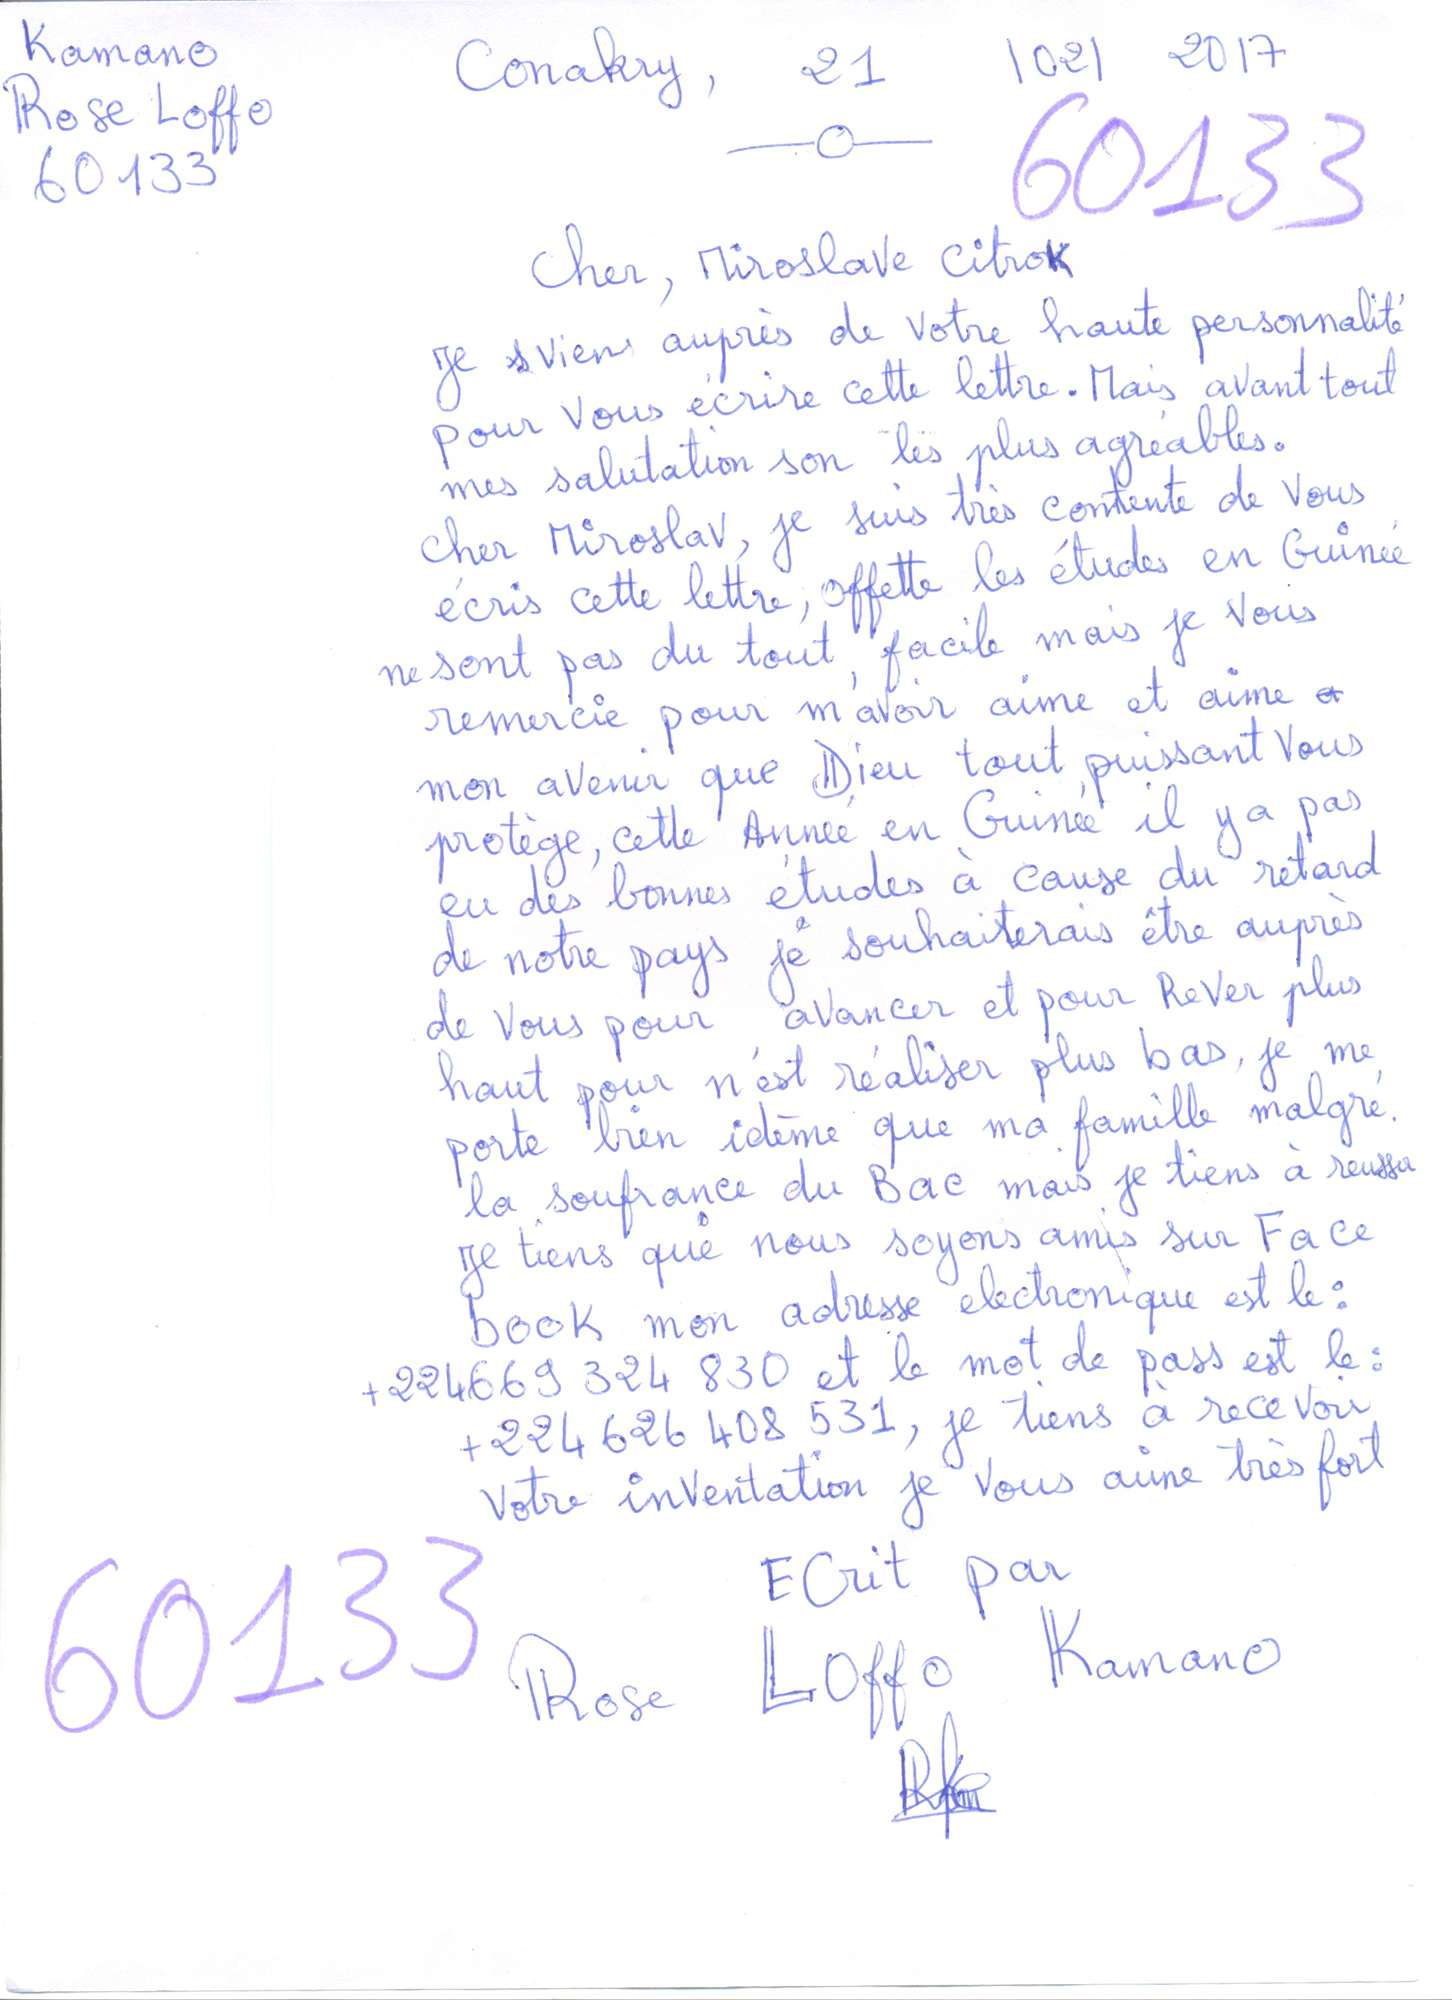 Kamano
Rose Loffo
60133
Conakry, 21 /02/ 2017
60133
Cher, Miroslave Citrok
Je viens auprès de votre haute personnalité
pour vous écrire cette lettre. Mais avant tout
mes salutation son les plus agréables.
Cher Miroslav, je suis très contente de vous
écris cette lettre, offette les études en Guinée
ne sont pas du tout, facile mais je vous
remercie pour m'avoir aime et aime
mon avenir que Dieu tout puissant vous
protège, cette Année en Guinée il y a pas
eu des bonnes études à cause du retard
de notre pays je souhaiterais être auprès
de vous pour avancer et pour Rever plus
haut pour n'est réaliser plus bas, je me
porte bien idème que ma famille malgré.
la soufrance du Bac mais je tiens à reussir
Je tiens que nous soyons amis sur Face
book mon adresse electronique est le:
+224669 324 830 et le mot de pass est le:
+224 626 408 531, je tiens à recevoir
votre inventation je vous aime très fort
60133
ECrit par
Rose Loffo Kamano